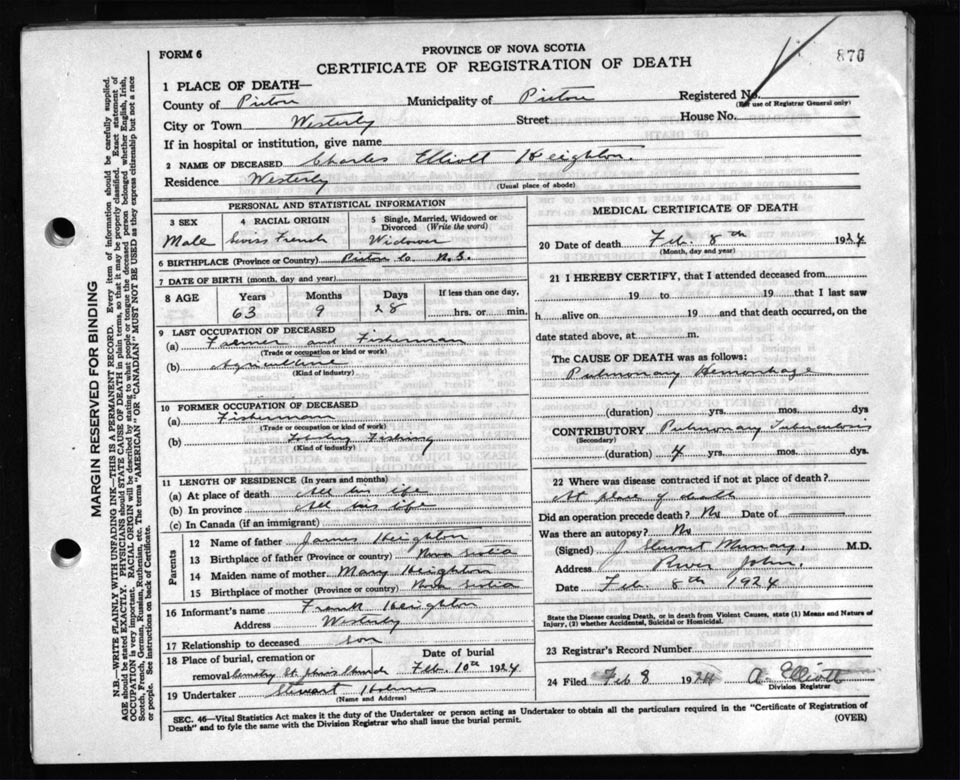 870
FORM 6
PROVINCE OF NOVA SCOTIA
CERTIFICATE OF REGISTRATION OF DEATH
1 PLACE OF DEATH—
County of Pictou Municipality of Pictou Registered No.
(For use of Registrar General only)
City or Town Westerly Street House No.
If in hospital or institution, give name
2 NAME OF DECEASED Charles Elliott Heighton.
Residence Westerly
(Usual place of abode)
PERSONAL AND STATISTICAL INFORMATION
3 SEX 4 RACIAL ORIGIN 5 Single, Married, Widowed or Divorced (Write the word)
Male Swiss French Widower
6 BIRTHPLACE (Province or Country) Pictou Co. N.S.
7 DATE OF BIRTH (month, day and year)
8 AGE Years Months Days If less than one day,
63 9 28 hrs. or min.
9 LAST OCCUPATION OF DECEASED
(a) Farmer and Fisherman
(Trade or occupation or kind or work)
(b) Agriculture
(Kind of industry)
10 FORMER OCCUPATION OF DECEASED
(a) Fisherman
(Trade or occupation or kind of work)
(b) Lobster Fishing
(Kind of industry)
11 LENGTH OF RESIDENCE (In years and months)
(a) At place of death All his life
(b) In province All his life
(c) In Canada (if an immigrant)
Parents
12 Name of father James Heighton
13 Birthplace of father (Province or country) Nova Scotia
14 Maiden name of mother Mary Heighton
15 Birthplace of mother (Province or country) Nova Scotia
16 Informant's name Frank Heighton
Address Westerly
17 Relationship to deceased son
18 Place of burial, cremation or removal Cemetery St. Church Date of burial Feb. 10th 1924
19 Undertaker Stewart Holmes
(Name and Address)
MEDICAL CERTIFICATE OF DEATH
20 Date of death Feb. 8th 1924
(Month, day and year)
21 I HEREBY CERTIFY, that I attended deceased from
19 to 19 that I last saw
h alive on 19 and that death occurred, on
date stated above, at m.
The CAUSE OF DEATH was as follows:
Pulmonary Hemorrhage
(duration) yrs. mos. dys
CONTRIBUTORY Pulmonary Tuberculosis
(Secondary)
(duration) 4 yrs. mos. dys.
22 Where was disease contracted if not at place of death?
At place of death
Did an operation precede death? No Date of
Was there an autopsy? No
(Signed) J Stewart Murray, M.D.
Address River John,
Date Feb. 8th 1924
State the Disease Causing Death, or in death from Violent Causes, state (1) Means and Nature of
Injury, (2) whether Accidental, Suicidal or Homicidal.
23 Registrar's Record Number
24 Filed Feb 8 1924 A. Elliott
Division Registrar
SEC. 46—Vital Statistics Act makes it the duty of the Undertaker or person acting as Undertaker to obtain all the particulars required in the "Certificate of Registration of
Death" and to fyle the same with the Division Registrar who shall issue the burial permit.
(OVER)
MARGIN RESERVED FOR BINDING
N.B.—WRITE PLAINLY WITH UNFADING INK—THIS IS A PERMANENT RECORD. Every item of information should be carefully supplied.
AGE should be stated EXACTLY. PHYSICIANS should STATE CAUSE OF DEATH in plain terms, so that it may be properly classified. Exact statement of
OCCUPATION is very important. RACIAL ORIGIN will be described by stating to what people or tongue the deceased person belonged whether English, Irish,
Scotch, French, German, Russian, Ruthenian, etc. The terms "AMERICAN" OR "CANADIAN" MUST NOT BE USED as they express citizenship but not a race
or people. See instructions on back of Certificate.